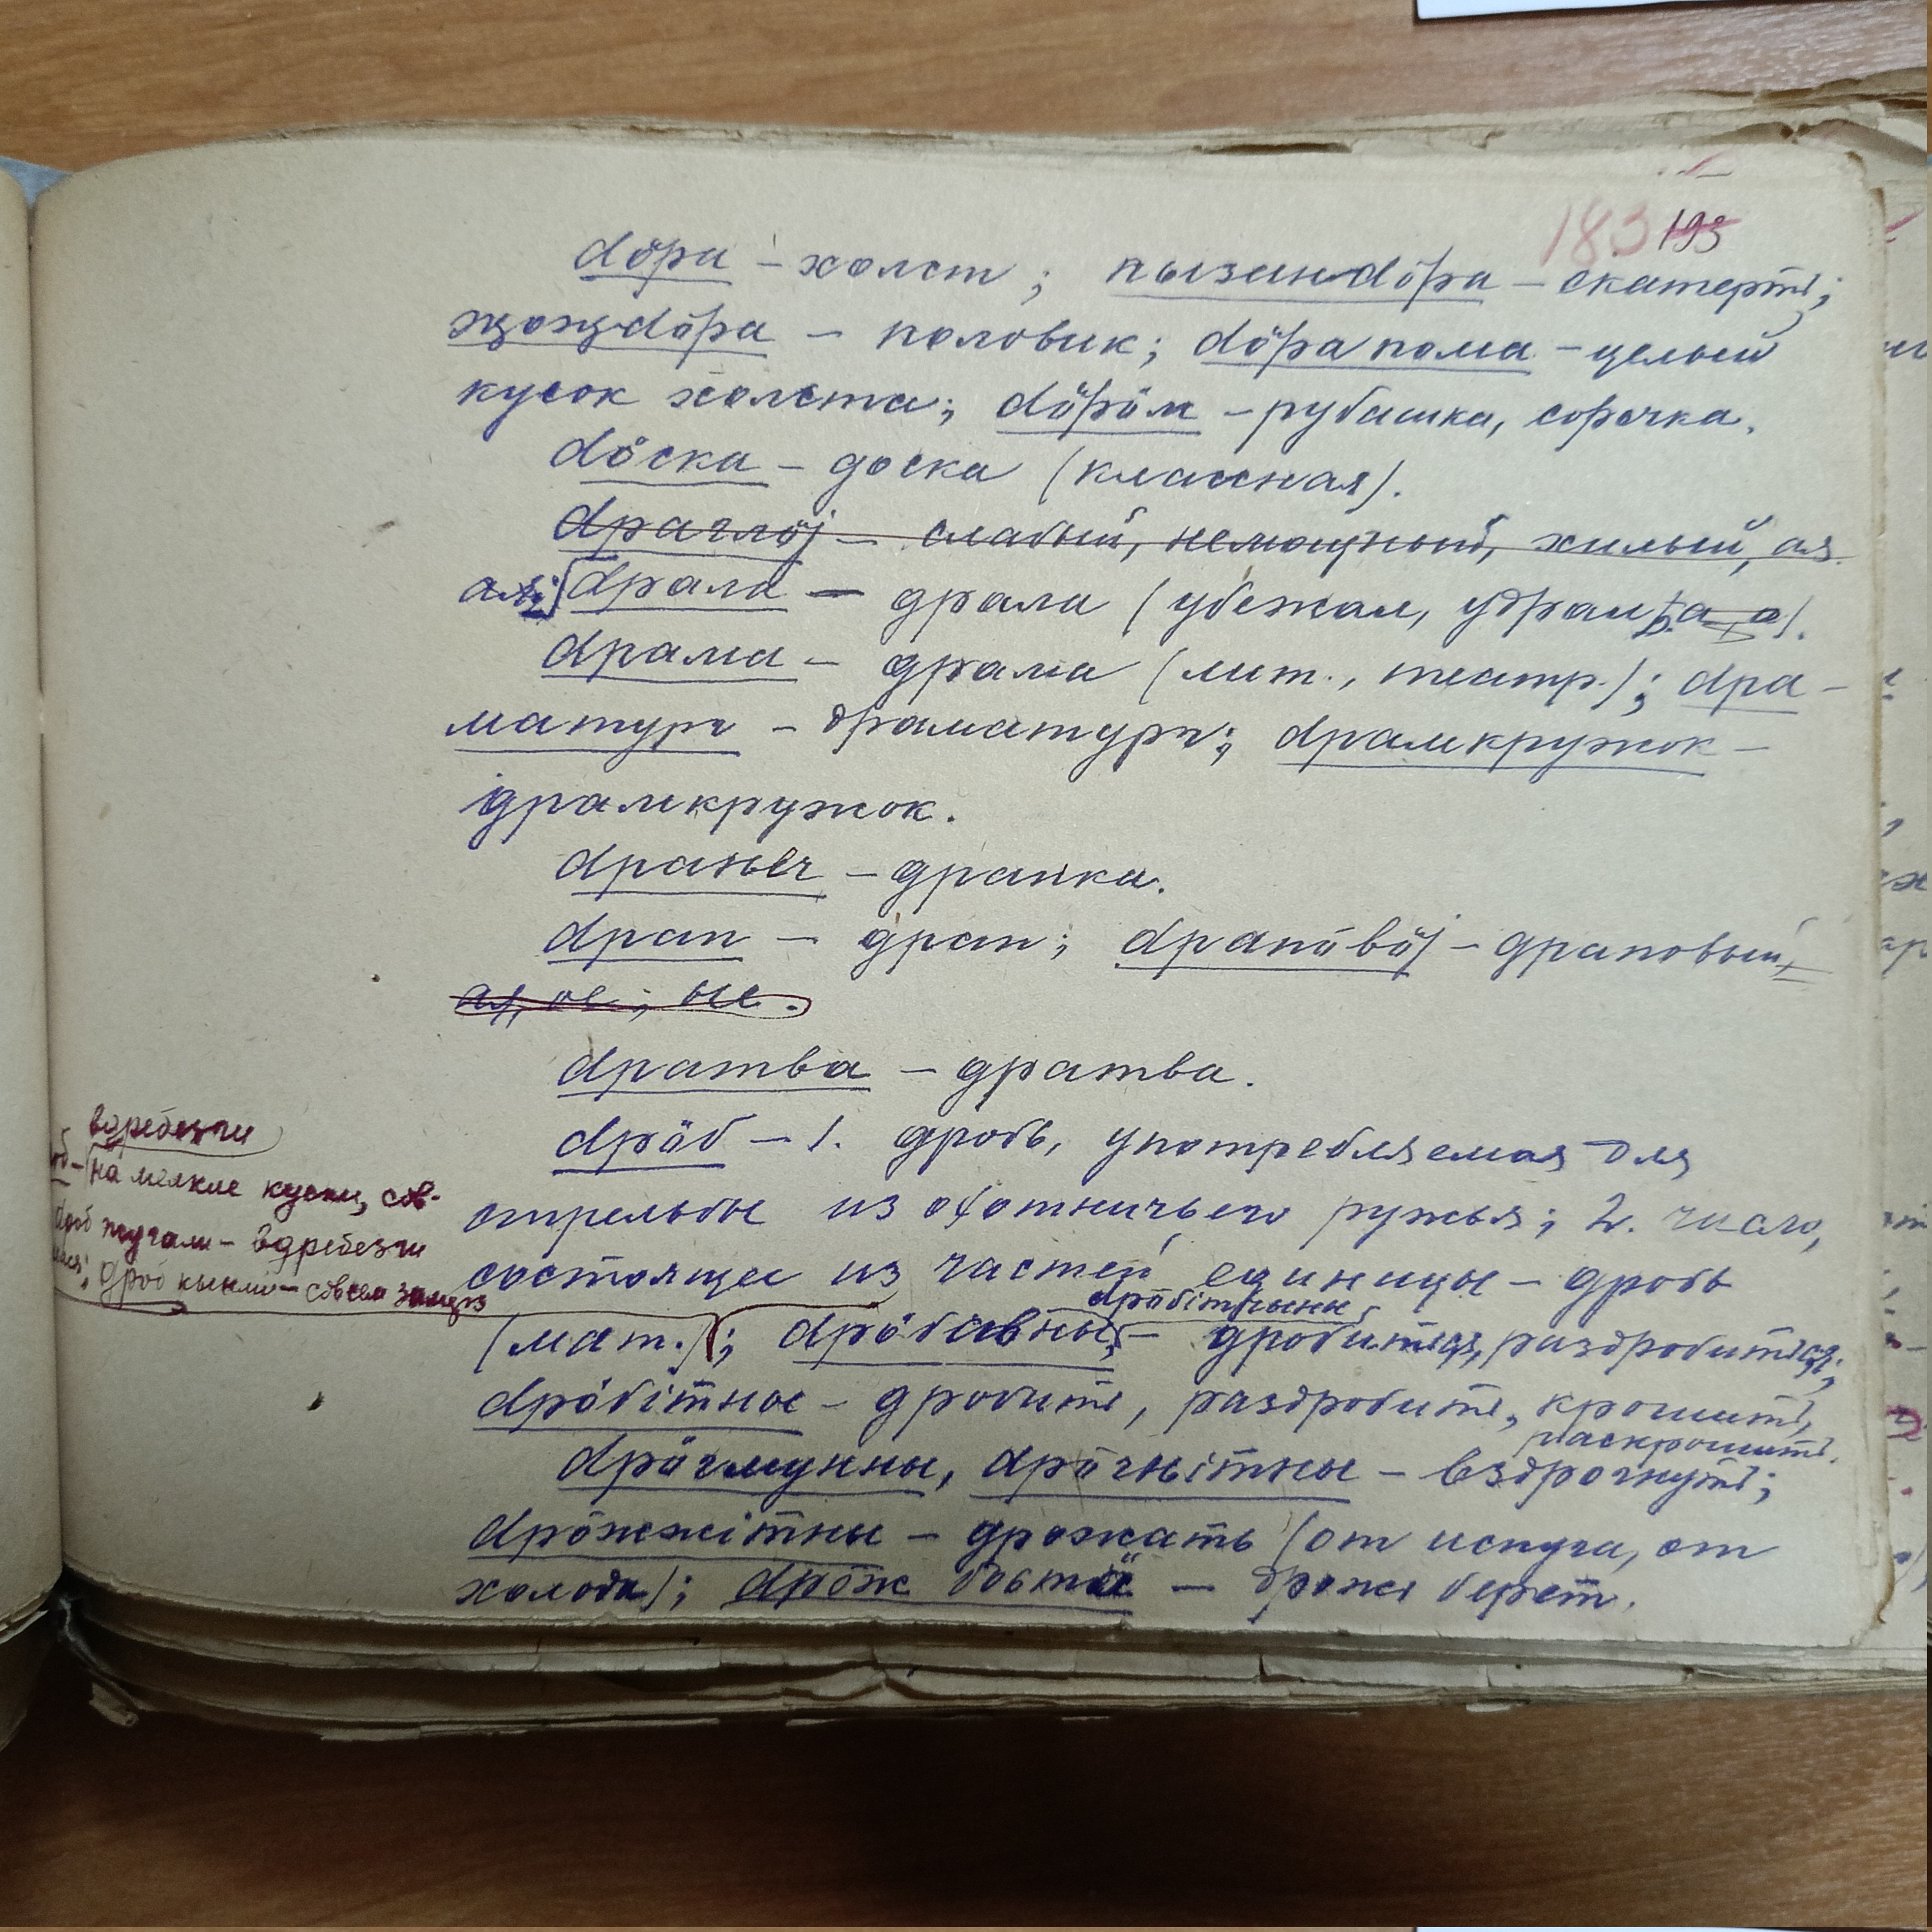 183 193
dӧра – холст; пызанdӧра – скатерть;
җоҗdӧра – половик; dӧра пома – целый
кусок холста; dӧрӧм – рубашка, сорочка.
dӧска – доска (классная).
dраглӧj – слабый, немощный, хилый, ая
dрала – драла (убежал, удрал
dрама – драма (лит., театр.); dра-
матург – драматург; dрамкружок –
драмкружок.
dранɵч – дранка.
dрап – драп; dрапӧвӧj – драповый,
ая, ое; ые.
dратва – дратва.
dрӧб – 1. дробь, употребляемая для
стрельбы из охотничьего ружья; 2. число,
состоящее из частей единицы – дробь
dрӧбітчыны
(мат.); dрӧбавны, – дробиться, раздробиться;
dрӧбітны – дробить, раздробить, крошить,
раскрошить.
dрӧгмунны, dрӧгнітны – вздрогнуть;
dрӧжжітны – дрожать (от испуга, от
холода); dрӧж бостӧ – дрожь берет.
вдребезги
на мелкие куски, сов-
жугали – вдребезги
дроб кынмі – совсем замерз